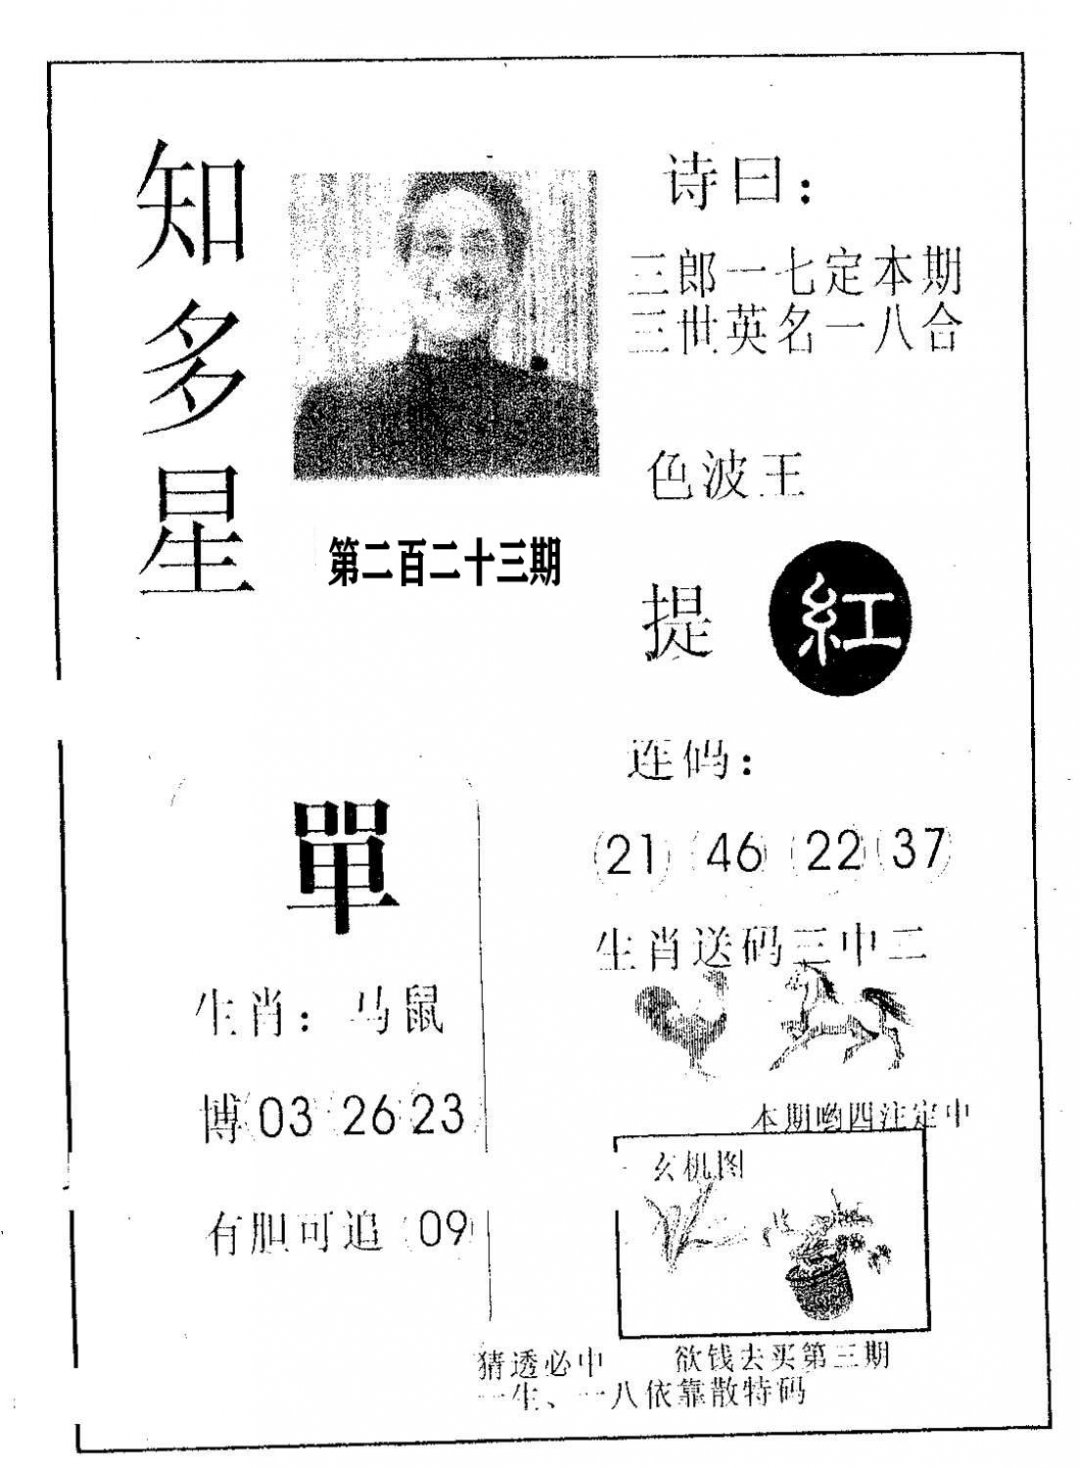 知多星
诗曰：
三郎一七定本期
三世英名一八合
色波王
第二百二十三期
提 紅
连码：
21 46 22 37
單
生肖送码三中二
生肖：马鼠
博 03 26 23
本期哟四注定中
玄机图
有胆可追 09
猜透必中 欲钱去买第三期
一生、一八依靠散特码